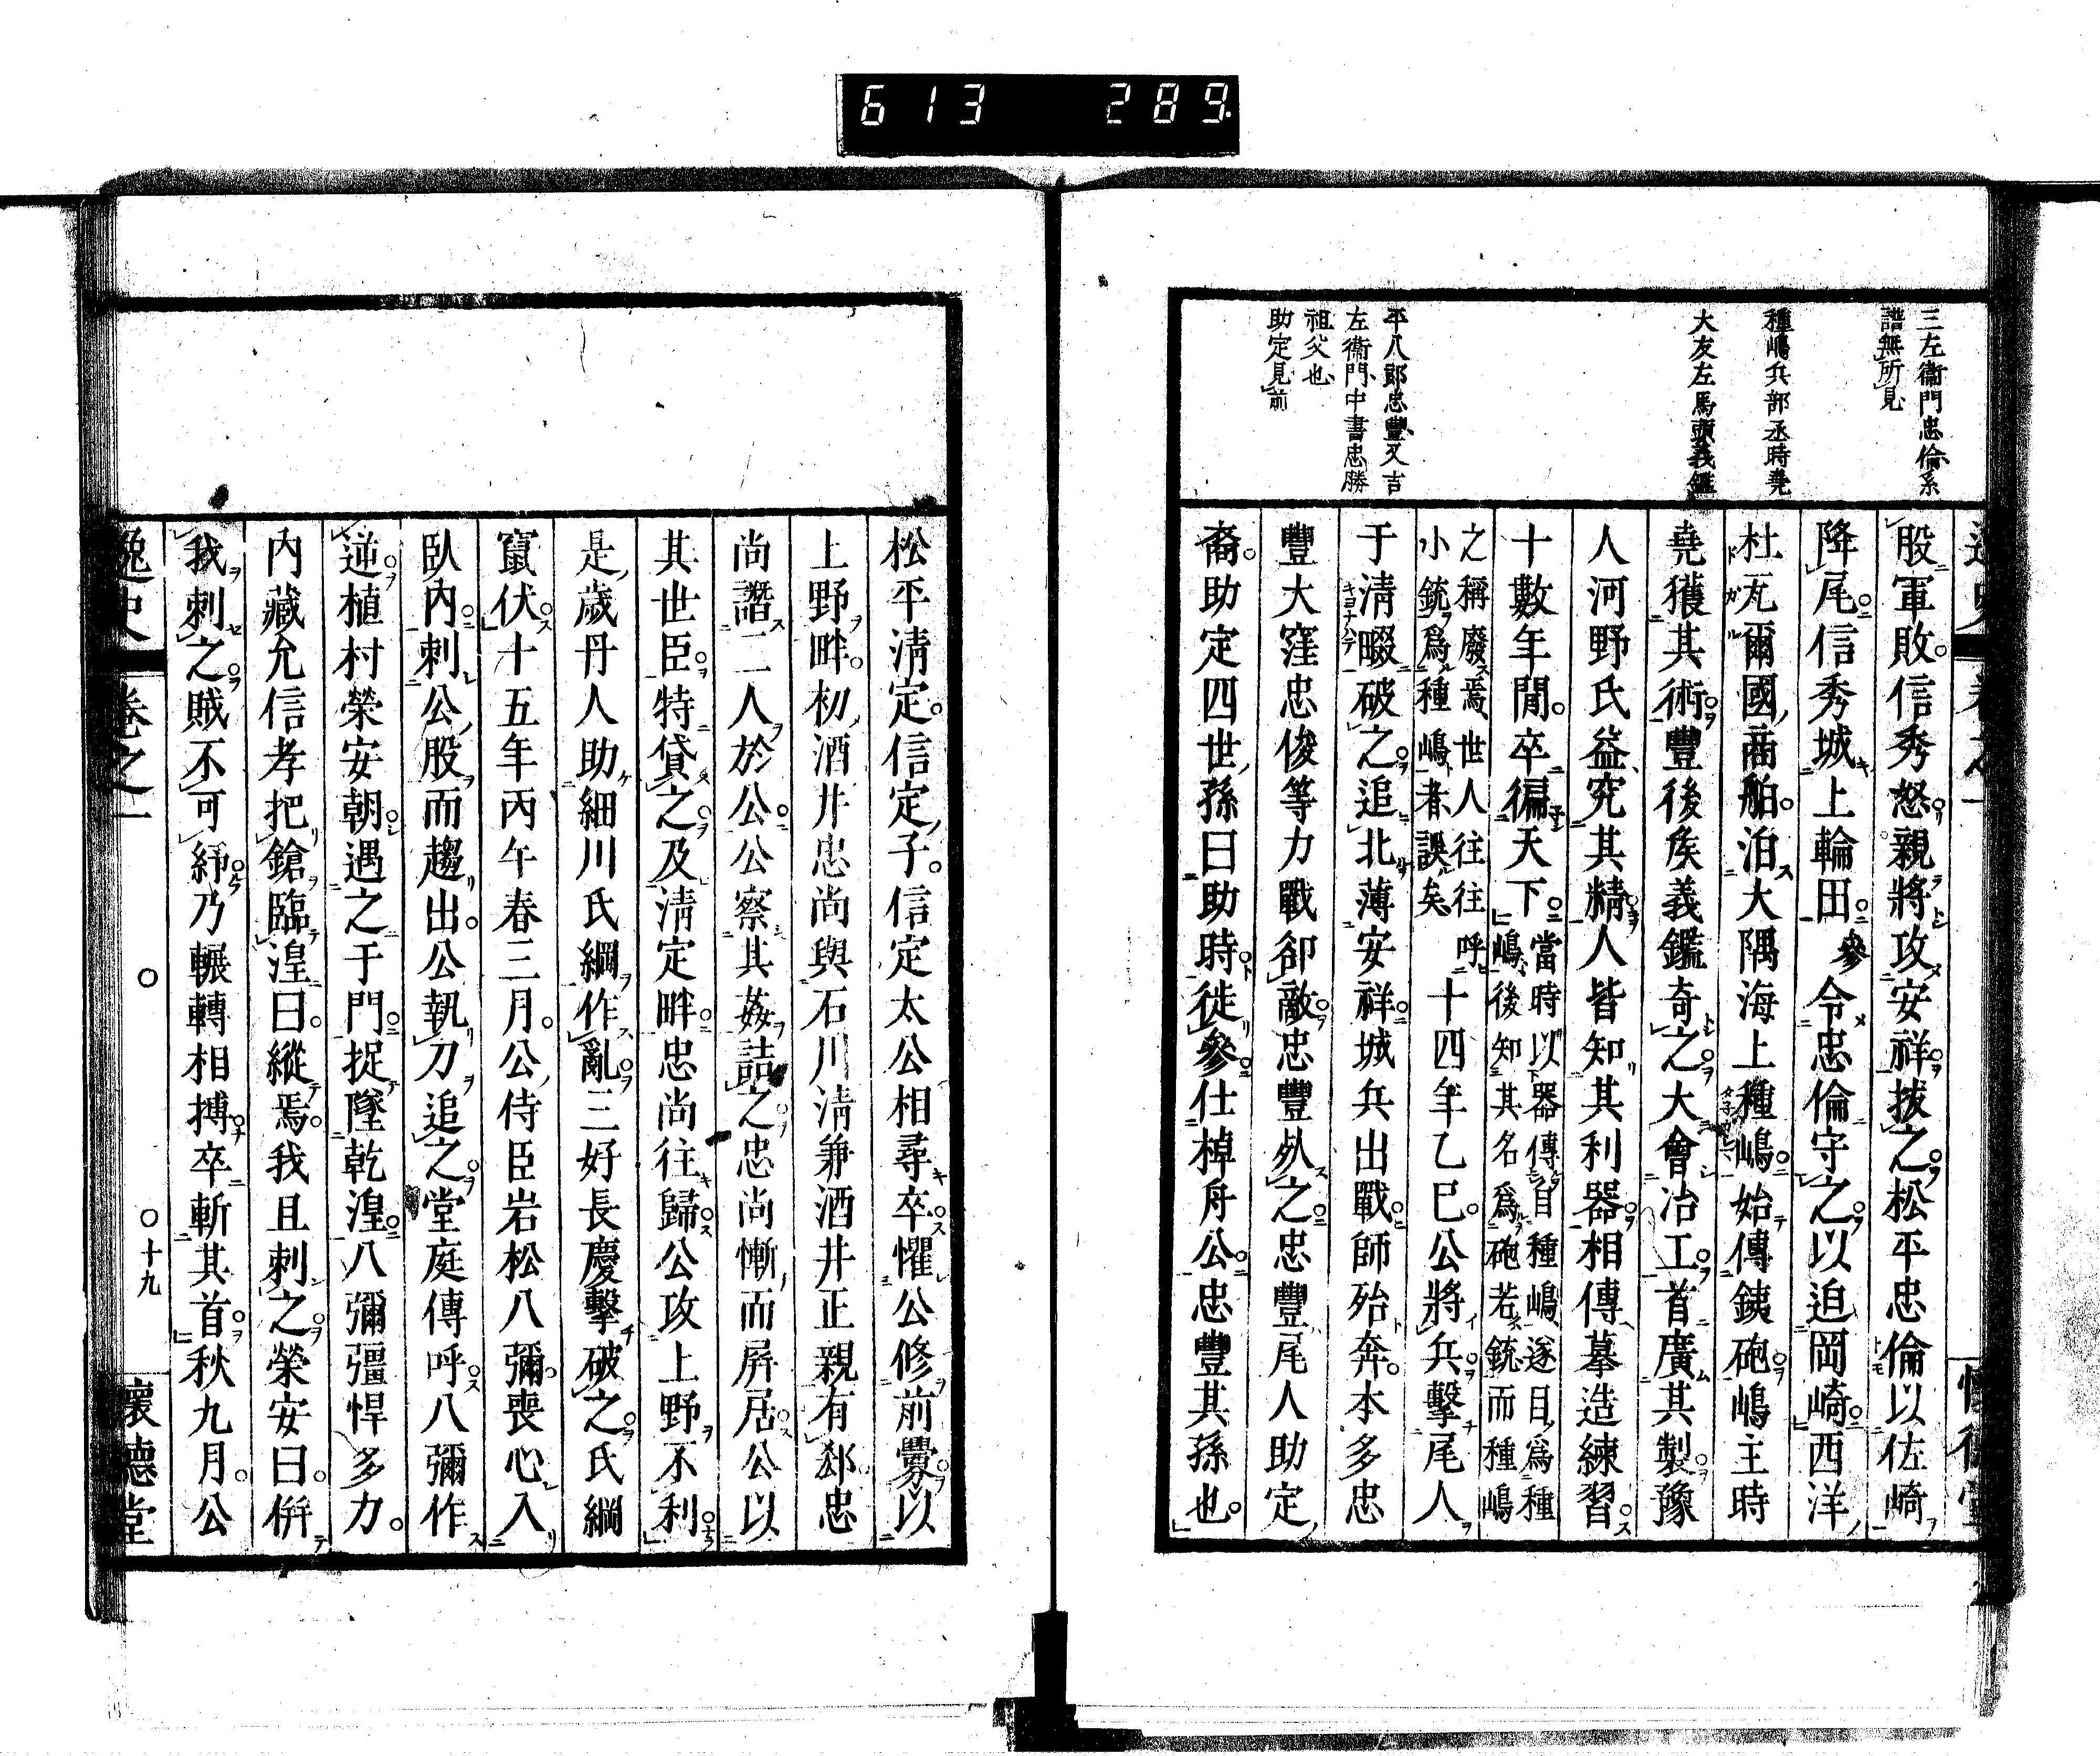 613 289
三左衞門忠倫系
譜無所見
種嶋兵部丞時堯
大友左馬頭義鑑
平八郎忠豐又吉
左衞門中書忠勝
祖父也
助定見前
逸史 卷之一 懷德堂
股軍敗信秀怒親將攻安祥拔之松平忠倫以佐崎
降尾信秀城上輪田參令忠倫守之以迫岡崎西洋
杜瓦爾國商舶泊大隅海上種嶋始傳鉄砲嶋主時
堯獲其術豐後矦義鑑奇之大會冶工首廣其製豫
人河野氏益究其精人皆知其利器相傳摹造練習
十數年閒卒徧天下當時以器傳自種嶋遂目爲種
嶋後知其名爲砲若銃而種嶋
之稱廢焉世人往往呼
小銃爲種嶋者誤矣
十四年乙巳公將兵擊尾人
于淸畷破之追北薄安祥城兵出戰師殆奔本多忠
豐大窪忠俊等力戰卻敵忠豐死之忠豐尾人助定
裔助定四世孫曰助時徙參仕棹舟公忠豐其孫也
松平淸定信定子信定太公相尋卒懼公修前釁以
上野畔初酒井忠尚與石川淸兼酒井正親有郄忠
尚譖二人於公公察其姦詰之忠尚慚而屏居公以
其世臣特貸之及淸定畔忠尚往歸公攻上野不利
是歲丹人助細川氏綱作亂三好長慶擊破之氏綱
竄伏十五年丙午春三月公侍臣岩松八彌喪心入
臥內刺公股而趨出公執刀追之堂庭傳呼八彌作
逆植村榮安朝遇之于門捉墜乾湟八彌彊悍多力
內藏允信孝把鎗臨湟曰縱焉我且刺之榮安曰倂
我刺之賊不可紓乃輾轉相搏卒斬其首秋九月公
逸史 卷之一 十九 懷德堂